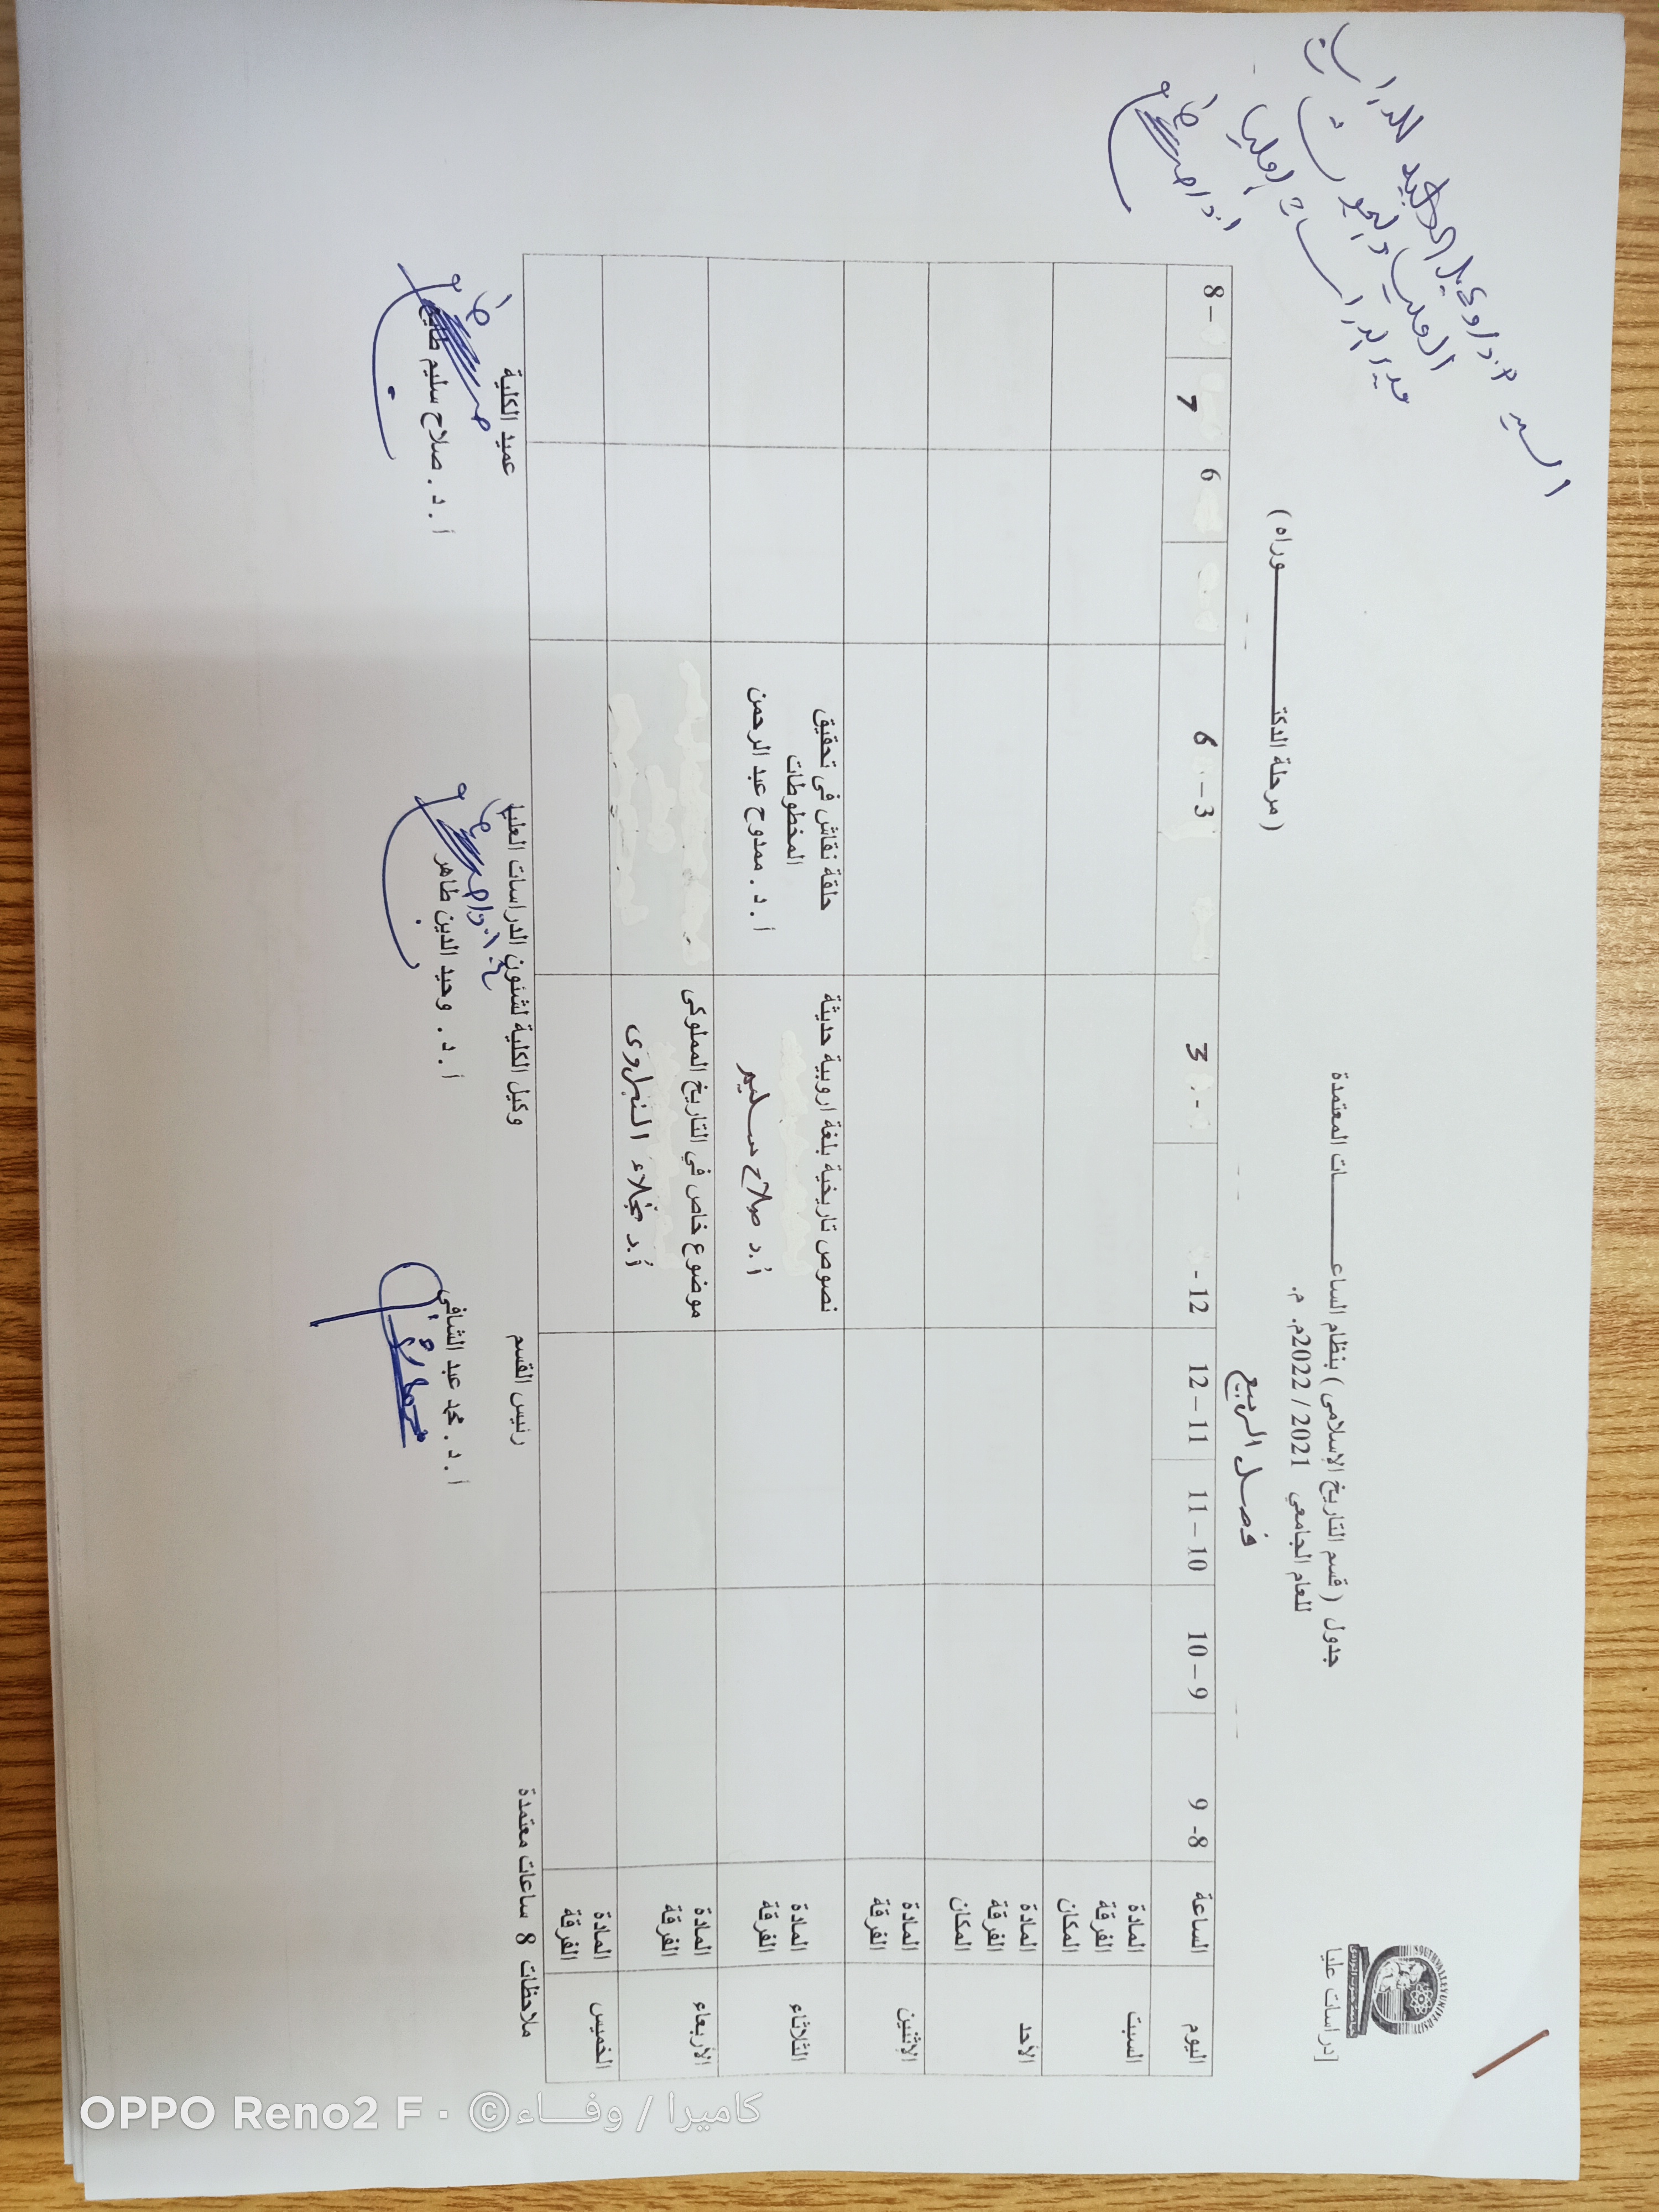 السيد أ.د/ وكيل الكلية للدراسات
العليا والبحوث
مدير الدراسات العليا
SOUTH VALLEY UNIVERSITY
جامعة جنوب الوادى
[دراسات عليا
جدول ( قسم التاريخ الإسلامى ) بنظام الساعـــــات المعتمدة
للعام الجامعي 2021 / 2022م. م.
( مرحلة الدكتــــــــوراه )
فصل الربيع
اليوم الساعة 8- 9 9 – 10 10 – 11 11 – 12 12 - 3 3 – 6 6 7 – 8
السبت المادة الفرقة المكان
الأحد المادة الفرقة المكان
الإثنين المادة الفرقة
الثلاثاء المادة الفرقة
نصوص تاريخية بلغة اروبية حديثة
أ.د صلاح سليم
حلقة نقاش فى تحقيق
المخطوطات
أ . د . ممدوح عبد الرحمن
الأربعاء المادة الفرقة
موضوع خاص في التاريخ المملوكى
أ.د نجلاء النبراوى
الخميس المادة الفرقة
ملاحظات 8 ساعات معتمدة
رئيس القسم
أ . د . محمد عبد الشافي
وكيل الكلية لشئون الدراسات العليا
أ . د . وحيد الدين طاهر
عميد الكلية
أ . د . صلاح سليم طايع
OPPO Reno2 F · ©كاميرا / وفــــاء